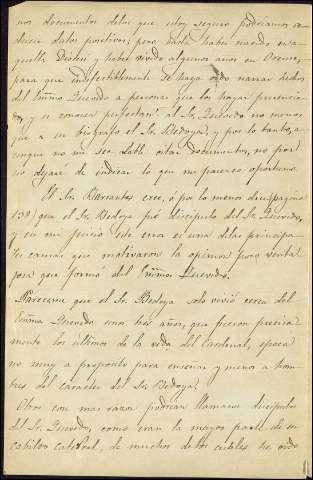 nos documentos delos que estoy seguro podriamos de-
ducir datos positivos; pero basta haber nacido en a-
quella Diocesi y haber vivido algunos anos en Orense,
para que indefectiblemente se haya oido narrar hechos
del Emmo Quevedo a personas que los hayan presencia-
do, y se conoce perfectamte. al Sr. Quevedo no menos
que a su biografo el Sr. Bedoya, y por lo tanto, a-
unque no me sea dable citar documentos, no por
eso dejaré de indicar lo que me parezca oportuno.
El Sr. Barrantes cree, ó por lo menos dice (pagina
139) que el Sr. Bedoya fué discipulo del Sr. Quevedo,
y en mi juicio este error es una delas principa-
les causas que motivaron la opinion poco venta
josa que formó del Emmo. Quevedo.
Pareceme que el Sr. Bedoya solo vivió cerca del
Emmo Quevedo unos tres años, que fueron precisa-
mente los ultimos de la vida del Cardenal, epoca
no muy a proposito para enseñar y menos a hom-
bres del caracter del Sr. Bedoya.
Otros con mas razon podrian llamarse discipulos
del Sr. Quevedo, como eran la mayor parte de su
cabildo catedral, de muchos delos cuales he oido